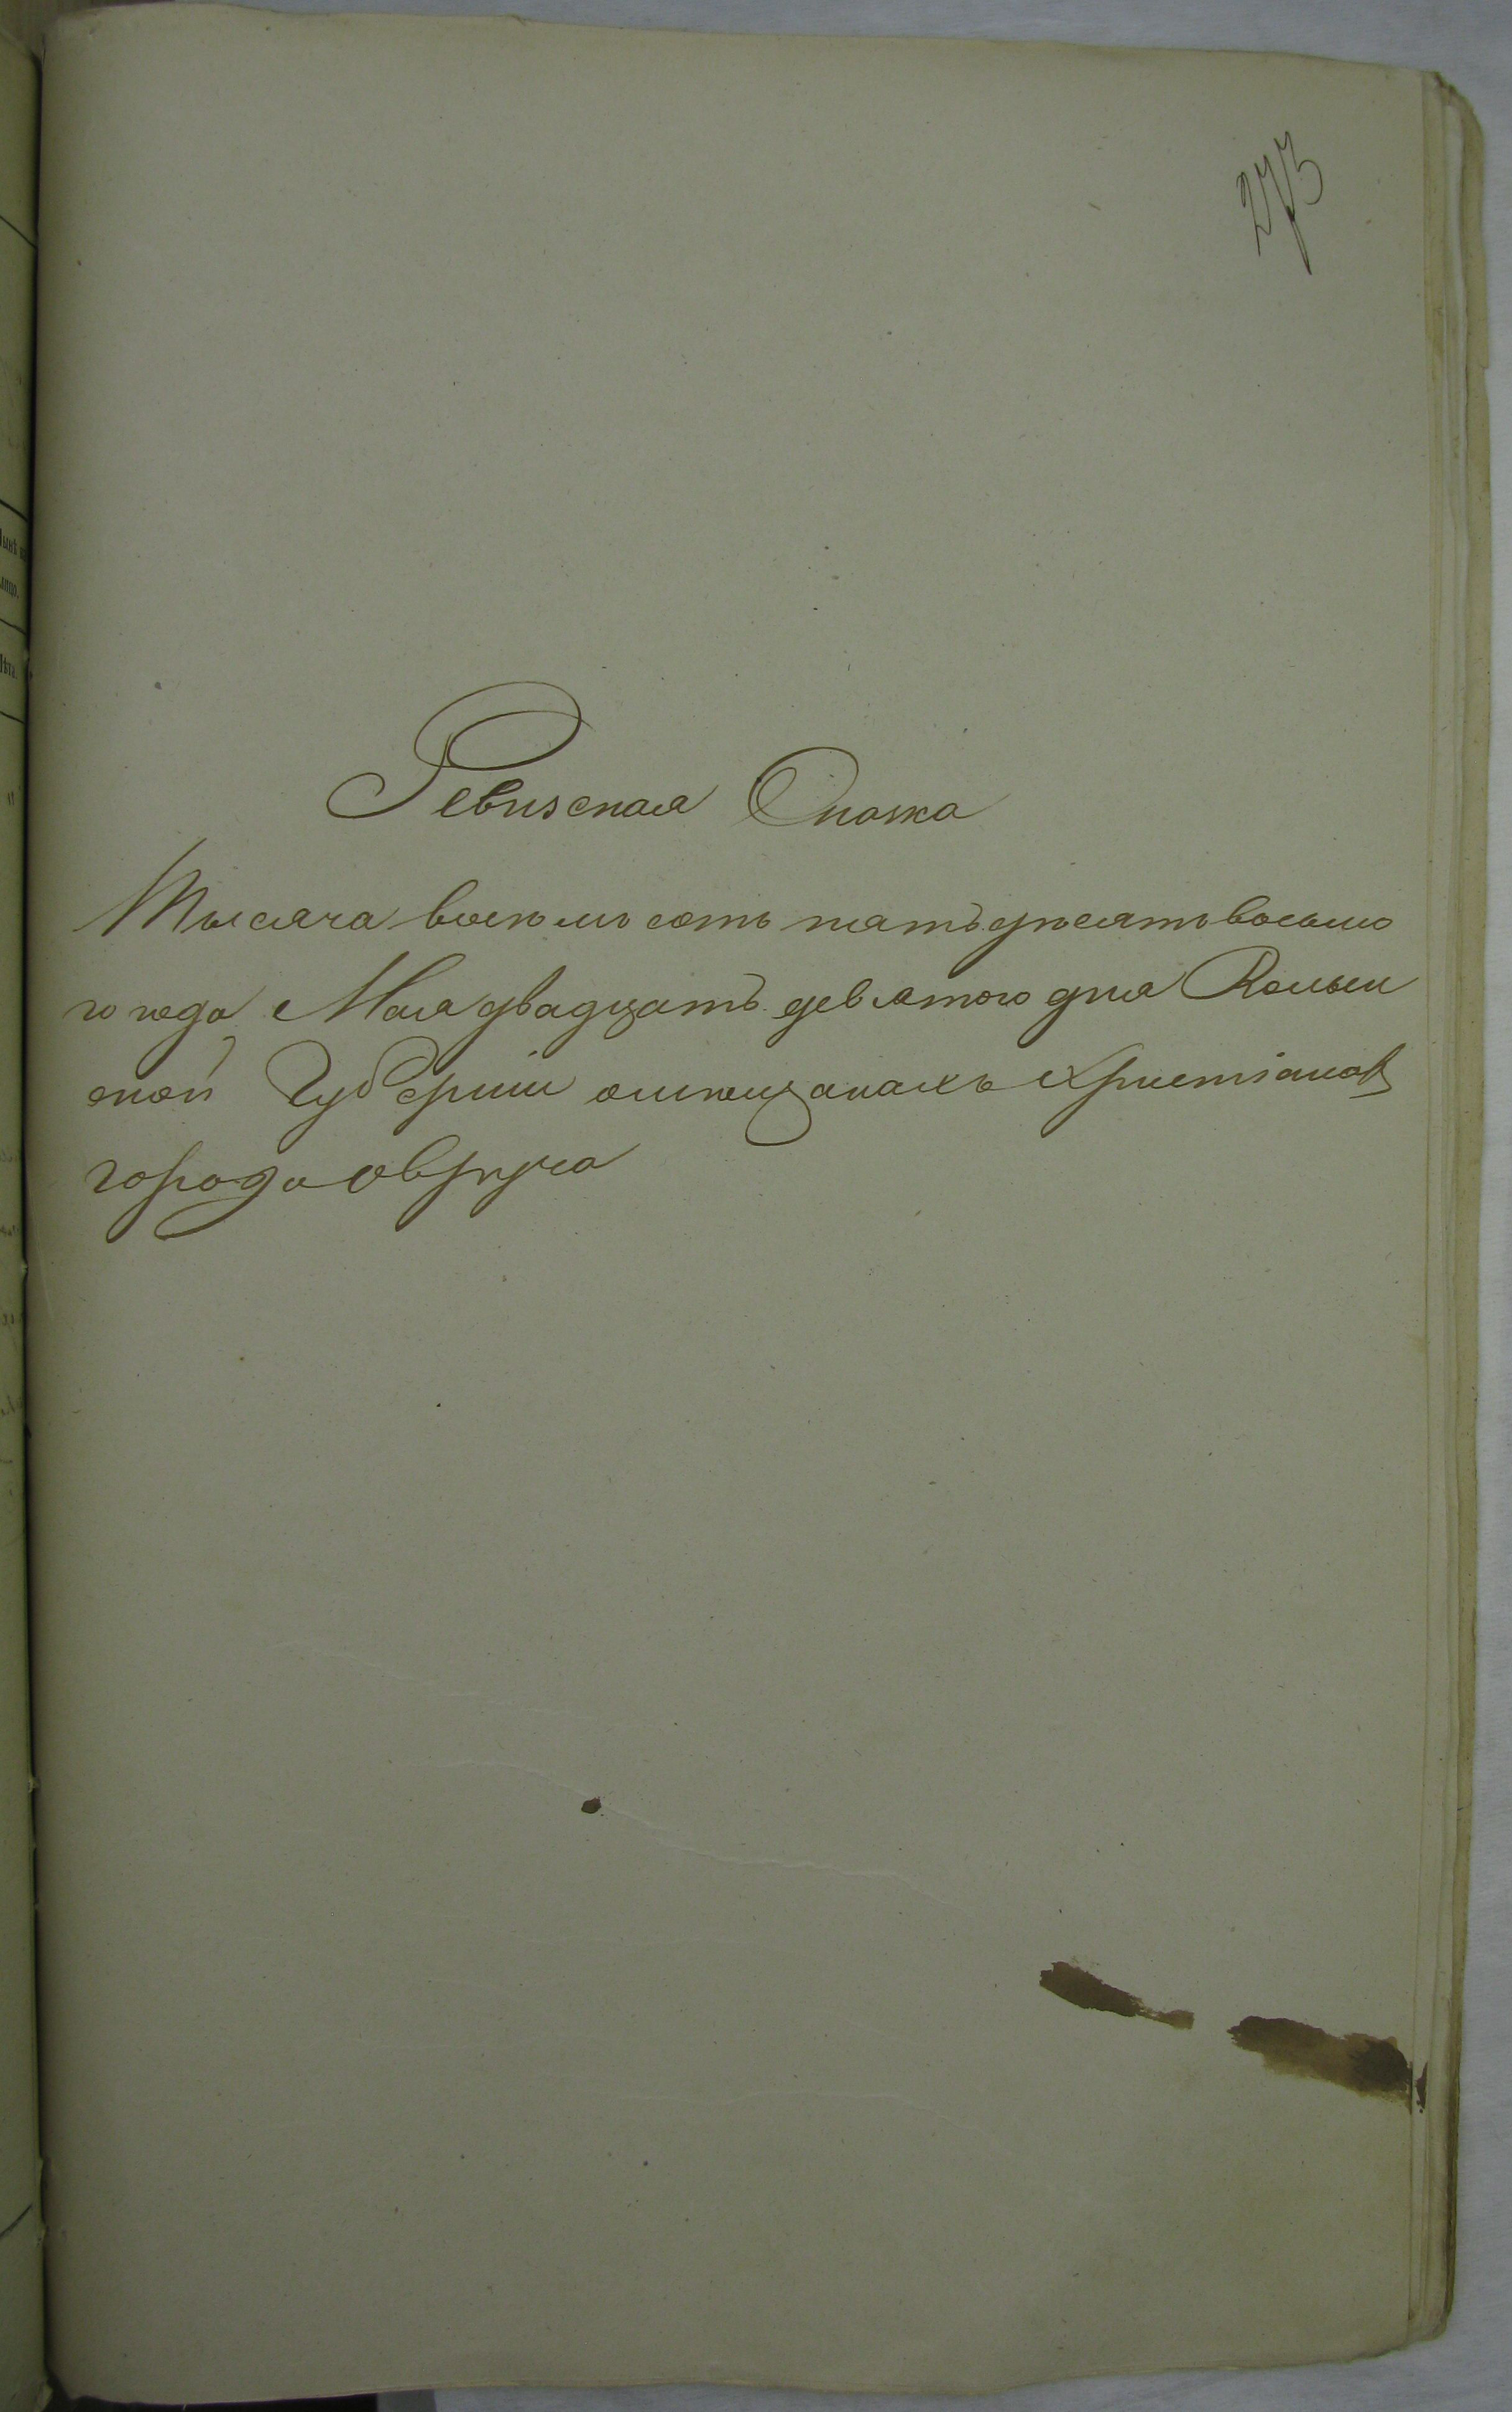 273
Ревизская Сказка
Тысяча восемь сотъ пятьдесятъ восьмо
го года Мая двадцать девятого дня Волын
ской Губерніи омещанахъ Христіанах
города Овруча